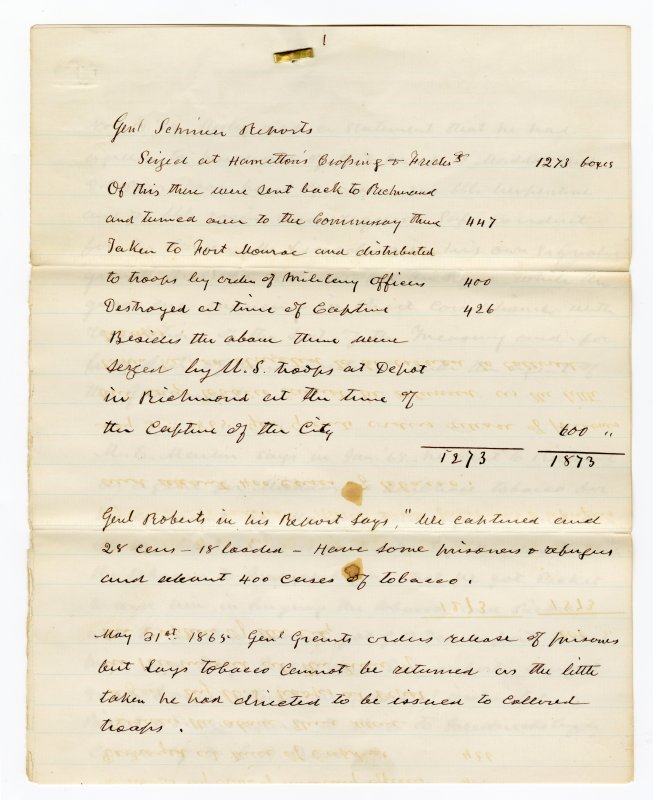 1
Genl Schriver Reports
Seized at Hamilton's Crossing & Fredcks 1273 boxes
Of this there were sent back to Richmond
and turned over to the Commissary there 447
Taken to Fort Monroe and distributed
to troops by order of Military officers 400
Destroyed at time of Capture 426
Besides the above there were
seized by U.S. troops at Depot
in Richmond at the time of
the Capture of the City 600 "
1273 1873
Genl Roberts in his Report says, "We captured and
28 cars - 18 loaded - Have some prisoners & refugees
and about 400 cases of tobacco.
May 31st 1865 Genl Grants orders release of prisoners
but says tobacco cannot be returned as the little
taken he had directed to be issued to collored
troops.